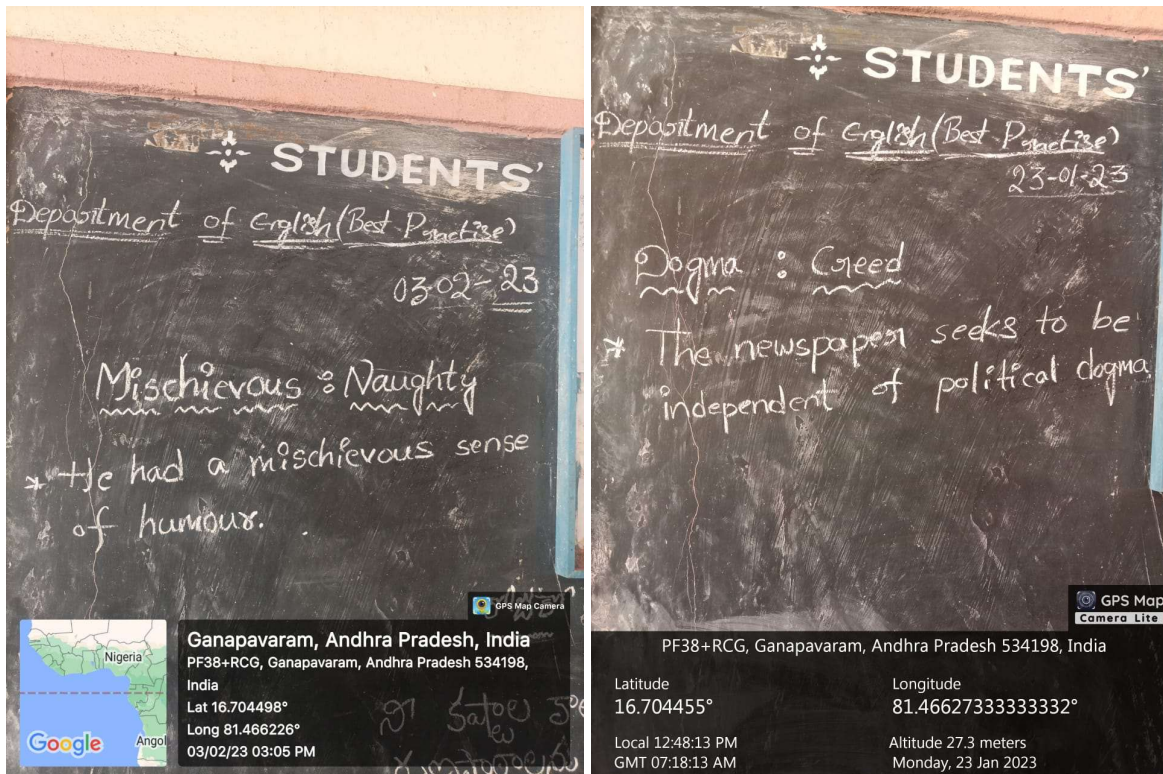 STUDENTS'
Department of English (Best Practise)
03-02-23
Mischievous : Naughty
* He had a mischievous sense
of humour.
GPS Map Camera
Nigeria
Angol
Google
Ganapavaram, Andhra Pradesh, India
PF38+RCG, Ganapavaram, Andhra Pradesh 534198,
India
Lat 16.704498°
Long 81.466226°
03/02/23 03:05 PM
STUDENTS'
Department of English (Best Practise)
23-01-23
Dogma : Creed
* The newspaper seeks to be
independent of political dogma.
GPS Map
Camera Lite
PF38+RCG, Ganapavaram, Andhra Pradesh 534198, India
Latitude
16.704455°
Longitude
81.46627333333332°
Local 12:48:13 PM
GMT 07:18:13 AM
Altitude 27.3 meters
Monday, 23 Jan 2023